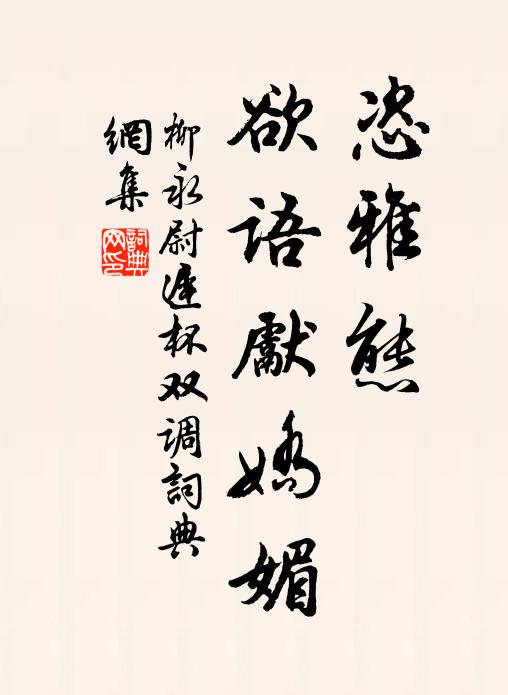 恣雅態
欲語獻嬌媚
柳永尉遲杯双调詞典
網集
詞典
网印